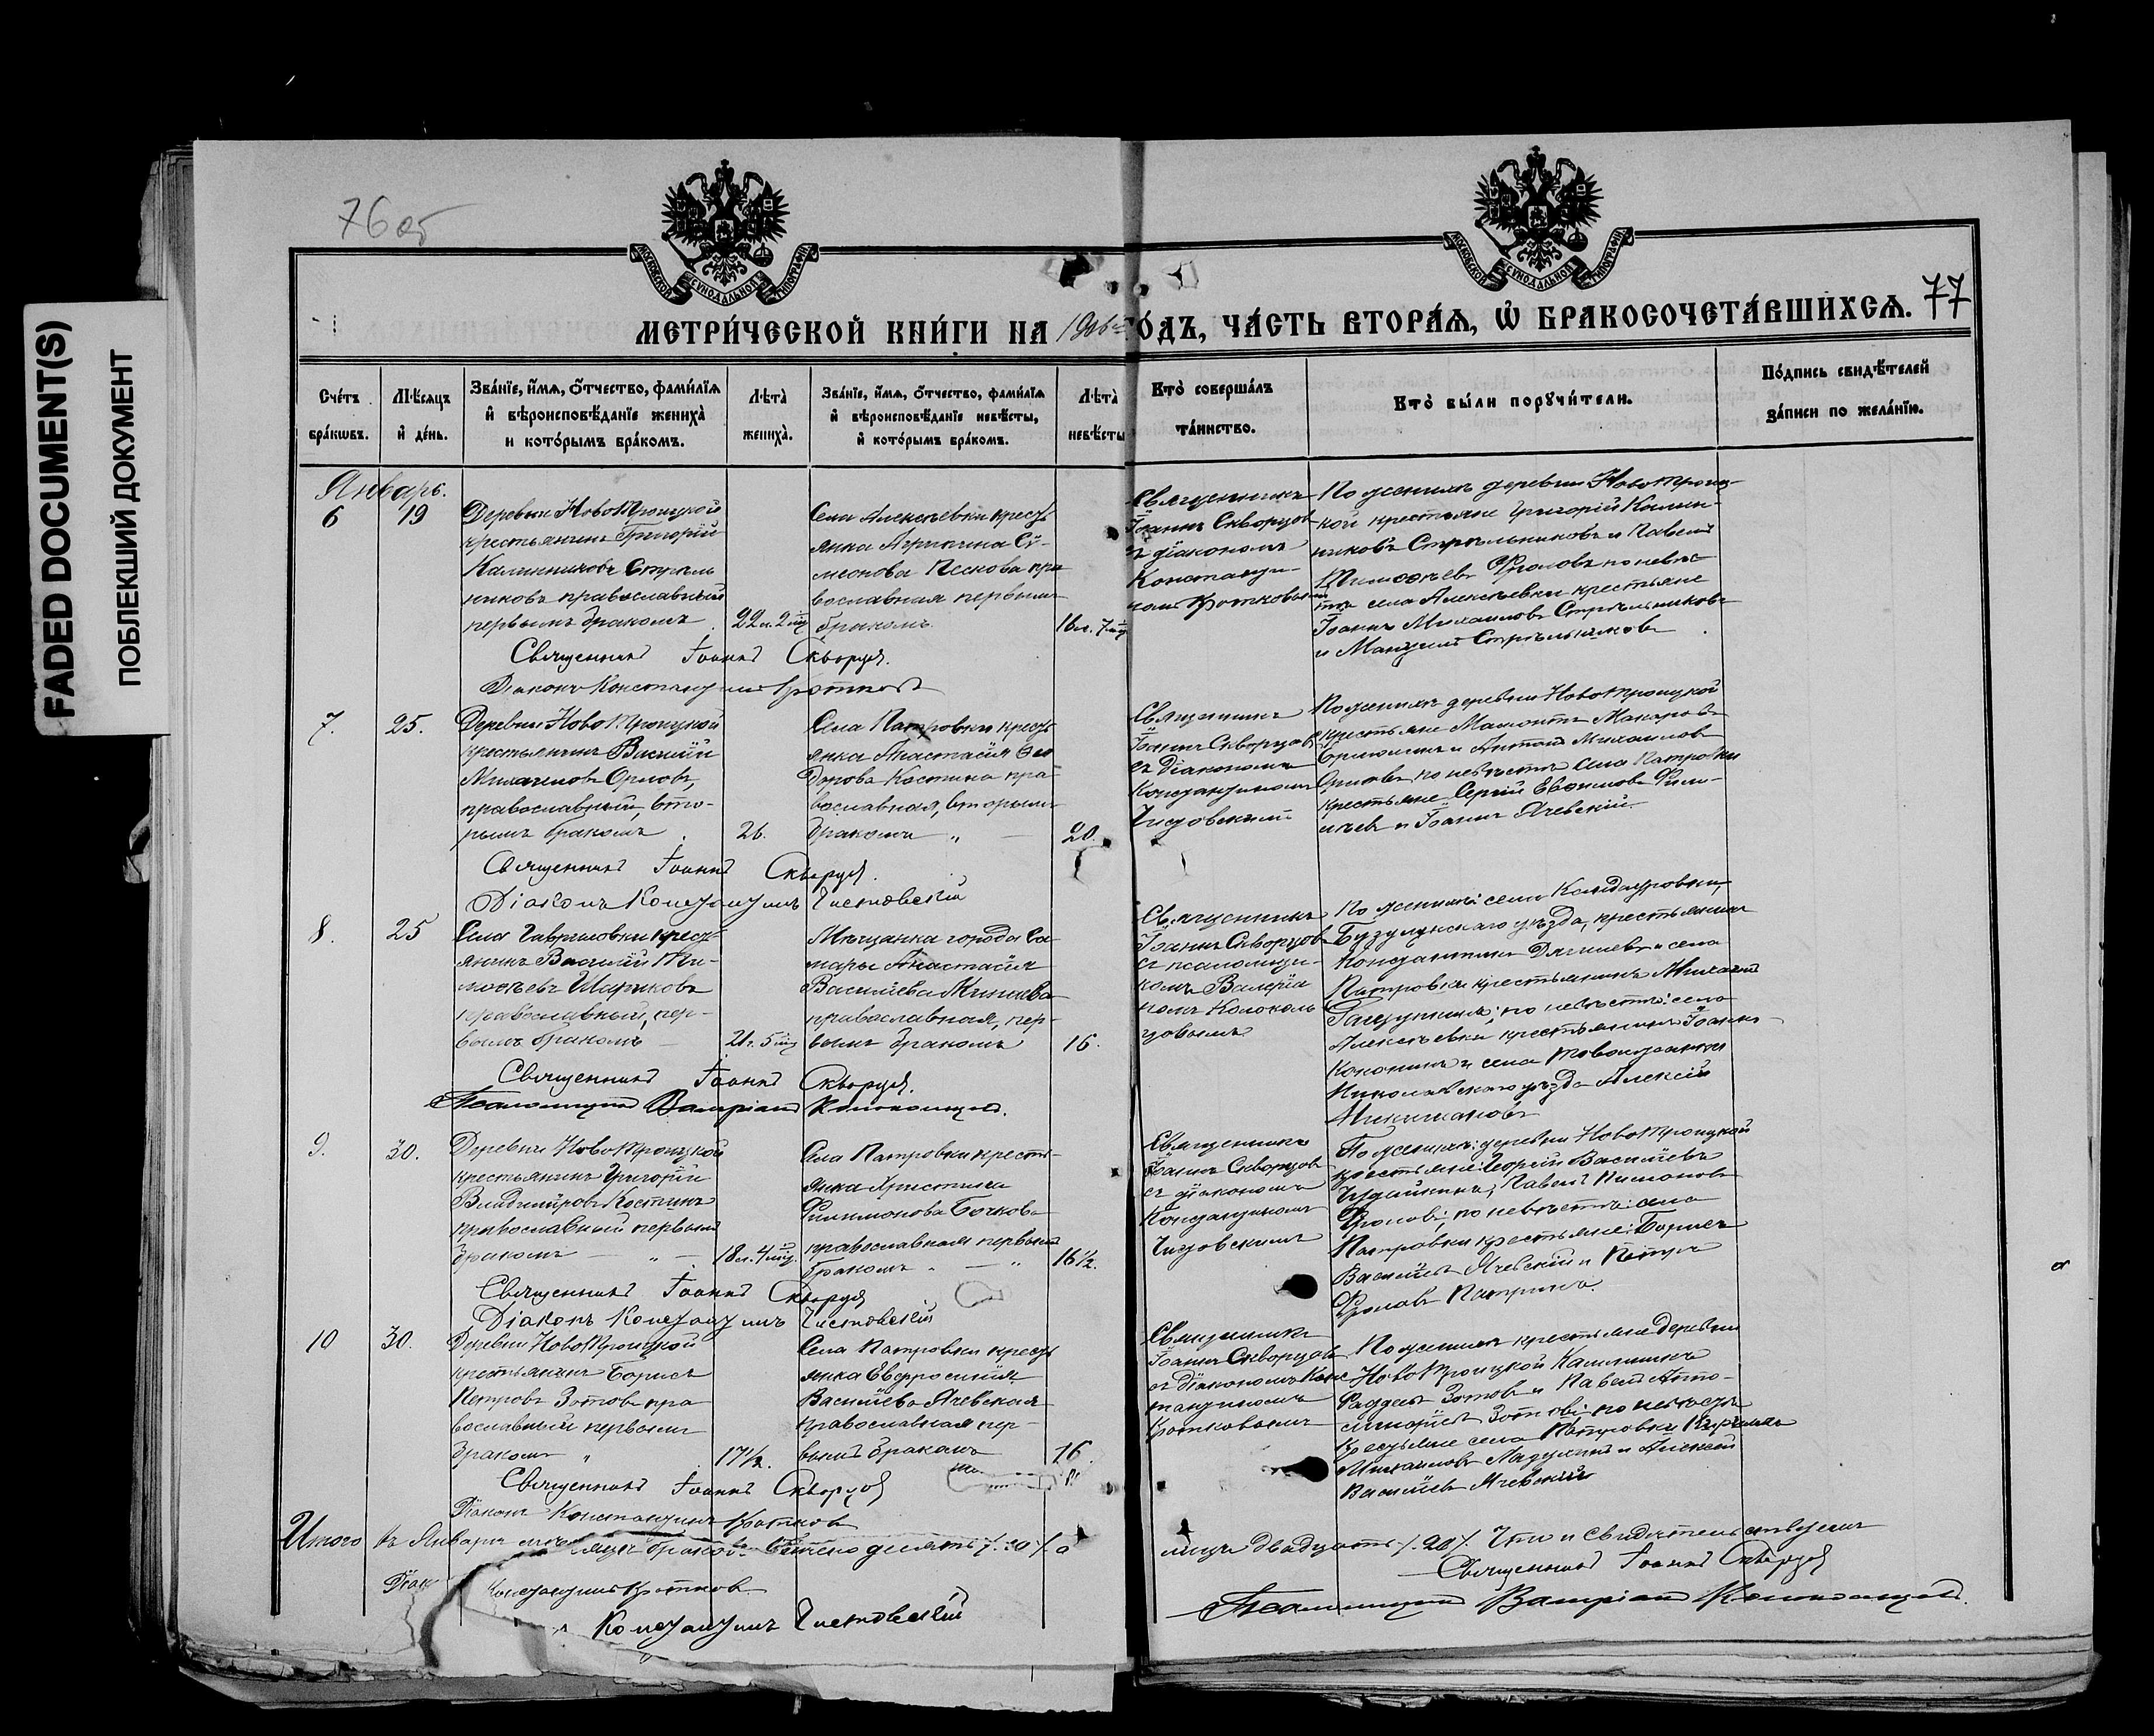 FADED DOCUMENT(S)
ПОБЛЕКШИЙ ДОКУМЕНТ
76 об
77
МОСКОВСКОЙ СѴНОДАЛЬНОЙ ТИПОГРАФІИ
МОСКОВСКОЙ СѴНОДАЛЬНОЙ ТИПОГРАФІИ
МЕТРИ́ЧЕСКОЙ КНИ́ГИ НА 1906й ГО́ДЪ, ЧА́СТЬ ВТОРА́Я, Ѡ҆ БРАКОСОЧЕТА́ВШИХСЯ.
Сче́тъ бра́кѡвъ.
Мѣ́сяцъ и҆ де́нь.
Зва́нїе, и҆́мя, ѻ҆́тчество, фами́лїя
и҆ вѣроисповѣ́данїе жениха̀
и кото́рымъ бра́комъ.
Лѣта̀ жениха̀.
Зва́нїе, и҆́мя, ѻ҆́тчество, фами́лїя
и҆ вѣроисповѣ́данїе невѣ́сты,
и҆ кото́рымъ бра́комъ.
Лѣта̀ невѣ́сты
Кто̀ соверша́лъ та́инство.
Кто̀ бы́ли порꙋчи́тели.
По́дпись свидѣ́телей за́писи по жела́нїю.
Январь.
6
19
Деревни НовоТроицкой
крестьянинъ Григорій
Калинниковъ Стрѣль
никовъ православный
первымъ бракомъ
22 л. 2 мѣ
Села Алексѣевки кресть
янка Агрипина Сѵ-
меонова Пескова пра
вославная первымъ
бракомъ
16 л. 7 мѣ
Священникъ
Іоаннъ Скворцов
съ діакономъ
Константи-
номъ Кротковымъ
По женихѣ деревни НовоТроиц-
кой крестьяне Григорій Калин-
никовъ Стрѣльниковъ и Павелъ
Тимоѳѣевъ Фроловъ по невѣс-
тѣ села Алексѣевки крестьяне
Іоаннъ Михаиловъ Стрѣльниковъ
и Мануилъ Стрѣльниковъ
Священникъ Іоаннъ Скворцов.
Діаконъ Константинъ Кротковъ
7.
25.
Деревни НовоТроицкой
крестьянинъ Василій
Михаиловъ Орловъ,
православный, вто-
рымъ бракомъ
26.
Села Патровки кресть
янка Анастасія Ѳео
дорова Костина пра
вославная, вторымъ
бракомъ
20.
Священникъ
Іоаннъ Скворцов
съ діакономъ
Константиномъ
Чистовскимъ
По женихѣ деревни НовоТроицкой
крестьяне Мамонтъ Макаровъ
и Антонъ Михаиловъ
Орловъ, по невѣстѣ села Патровки
крестьяне Сергій Евѳимовъ
и Іоаннъ Ячевскій.
Священникъ Іоаннъ Скворцов.
Діаконъ Константинъ Чистовскій
8.
25
Села Гавриловки кресть
янинъ Василій Ти-
моѳѣевъ Шариковъ
православный, пер-
вымъ бракомъ
21 г. 5 мѣ
Мѣщанка города Са-
мары Анастасія
Василіева Минаева
православная, пер-
вымъ бракомъ
16.
Священникъ
Іоаннъ Скворцов
съ псаломщи-
комъ Валеріа
номъ Колоколь
цовымъ
По женихѣ: села
Бузулукскаго уѣзда, крестьянинъ
Константинъ и села
Патровки крестьянинъ Михаилъ
по невѣстѣ: села
Алексѣевки крестьянинъ Іоаннъ
Кононинъ и села
Николаевскаго уѣзда Алексій
Священникъ Іоаннъ Скворцов.
Псаломщикъ Валеріанъ Колокольцовъ.
9.
30.
Деревни НовоТроицкой
крестьянинъ Григорій
Владиміровъ Костинъ
православный первымъ
бракомъ
18 л. 4 мѣ.
Села Патровки кресть-
янка Христина
Филимонова Бочкова
православная первымъ
бракомъ
16 1/2.
Священникъ
Іоаннъ Скворцов
съ діакономъ
Константиномъ
Чистовскимъ
По женихѣ: деревни НовоТроицкой
крестьяне: Георгій Василіевъ
Павелъ
Фроловъ; по невѣстѣ: села
Патровки крестьяне: Борисъ
Василіевъ Ячевскій и Петръ
Фроловъ
Священникъ Іоаннъ Скворцов
Діаконъ Константинъ Чистовскій
10
30.
Деревни НовоТроицкой
крестьянинъ Борисъ
Петровъ Зотовъ пра
вославный первымъ
бракомъ
17 1/2.
Села Патровки кресть
янка Евфросинія
Василіева Ячевская
православная пер-
вымъ бракомъ
16
Священникъ
Іоаннъ Скворцов
съ діакономъ Конс
тантиномъ
Кротковымъ
По женихѣ крестьяне деревни
НовоТроицкой Каллиникъ
Фаддеевъ Зотовъ и Павелъ
Зотовъ: по невѣстѣ
крестьяне села Патровки
Михаиловъ и Алексѣй
Василіевъ Ячевскій
Священникъ Іоаннъ Скворцов
Діаконъ Константинъ Кротковъ
Итого въ Январѣ мѣсяцѣ браковъ десять /.10/. а
лицъ двадцать /.20/. Что и свидѣтельствуемъ
Священникъ Іоаннъ Скворцов
Діак Константинъ Кротковъ
Константинъ Чистовскій
Псаломщикъ Валеріанъ Колокольцовъ.